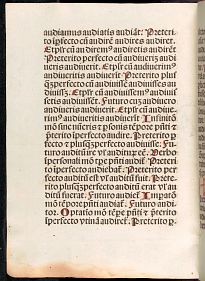 audiamus audiatis audiāt: Preteri-
to īperfecto cū audirē audires audiret.
Et plr̄ cū audirem⁹ audiretis audirēt
Preterito perfecto cū audiuerī audi
ueris audiuerit. Et plr̄ cū audiuerim⁹
audiueritis audiuerīt Preterito pluſ
q̄ꝫperfecto cū audiuiſſē audiuiſſes au
diuiſſꝫ. Et plr̄ cū audiuiſſem⁹ audiuiſ
ſetis audiuiſſēt. Futuro cuꝫ audiuero
audiueris audiuerit. Et plr̄ cū audiue
rim⁹ audiueritis audiuerīt Infinito
mō ſine numeris ⁊ ꝑſonis tēpore pn̄ti ⁊
p̄terito īperfecto audire. Preterito ꝑ
fecto ⁊ pluſq̄ꝫperfecto audiuiſſe. Fu
turo auditū ire
imperſonali mō tp̄e pn̄ti audit̄. Preteri
to īperfecto audiebat̄. Preterito per
fecto auditū eſt vl̓ auditū fuit. Prete
rito pluſq̄ꝫperfecto auditū erat vl̓ au
ditū fuerat. Futuro audiet̄ Imperati
mō tēpore pn̄ti audiat̄. Futuro audi
tor. Optatio mō tēpe pn̄ti ⁊ p̄terito
īperfecto vtinā audiret̄. Preterito ꝑ-